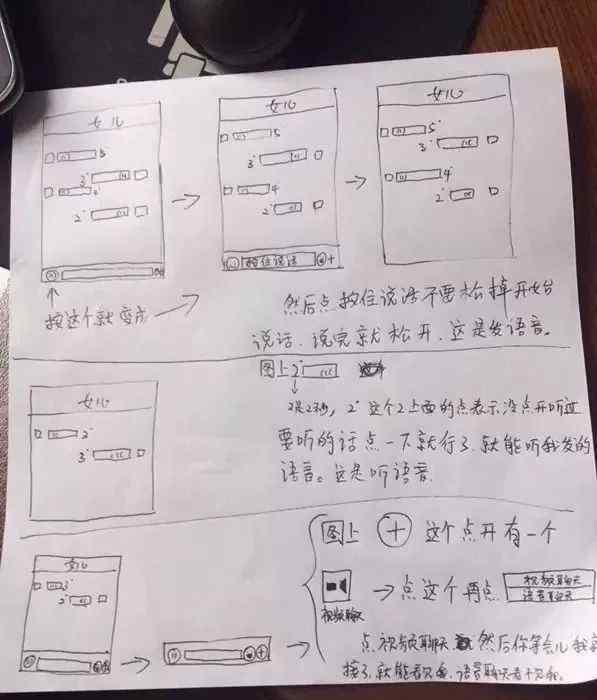 女儿
女儿
女儿
5
3"
2"
2"
5
3"
4
2"
5"
3"
4"
2"
按住说话
按这个就变成
然后点按住说话不要松掉开始
说话、说完就松开、这是发语音。
女儿
2"
3"
图上2"
2是2秒，2"这个2上面的点表示没点开听过
要听的话点一下就行了、就能听我发的
语音。这是听语音
女儿
3"
2"
图上 + 这个点开有一个
视频聊天
→点这个再点
视频聊天
语音聊天
点视频聊天 然后你等会儿我
接了、就能看见我、语音聊天看不见我。